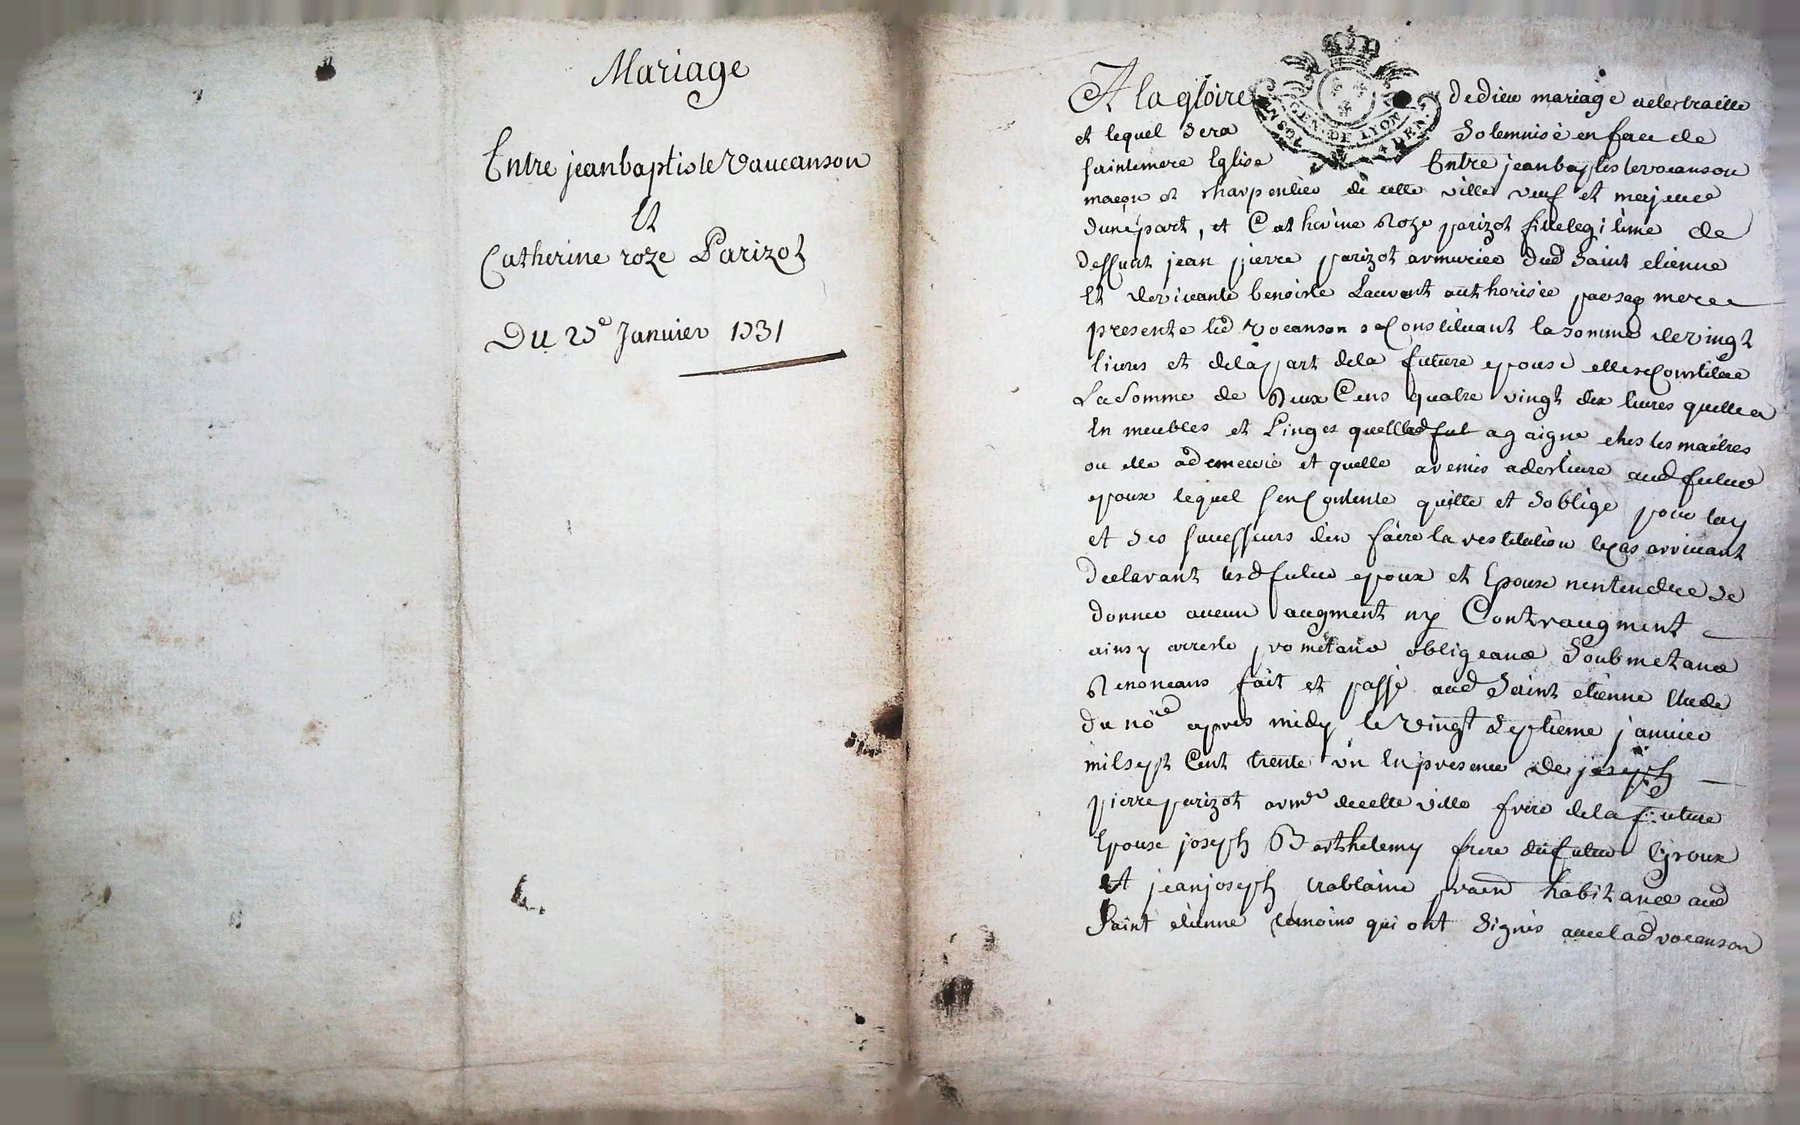 Mariage
Entre jeanbaptiste Vaucanson
Et
Catherine roze Parizot
Du 27e Janvier 1731
A la gloire de dieu mariage aeste traitté
et lequel sera solemnisé en face de
sainte mere Eglise Entre jeanbaptiste vocanson
maçon et charpentier de cette ville veuf et majeur
dunepart, et Catherine Roze parizot fille legitime de
deffunt jean pierre parizot armurier dud saint etienne
Et de vivante benoiste Laurent authorisée parsaq mere
presente led vocanson se Constituant la somme de vingt
livres et delapart dela future epouse elle se Constitue
La somme de Deux Cens quatre vingt dix livres quelle a
En meubles et Linges quelle agaigné ches les maitres
ou elle a demeuré et quelle a remis aud futur
epoux lequel sen Contente quitte et soblige pour luy
et ses successeurs den faire la restitution le Cas arrivant
declarant lesd futur epoux et Epouse nentendre se
donner aucun augment ny Contraugment
ainsy arresté prometans obligeans Soubmetans
Renoncans fait et passé aud Saint etienne Etude
du nore apres midy le vingt septieme janvier
mil sept Cent trente un En presence de joseph
pierre parizot armer de cette ville frere dela future
Epouse joseph Barthelemy frere du futur Epoux
Et jean joseph praen habitans aud
Saint etienne temoins qui ont signés avec lad vocanson
GEN. DE LYON